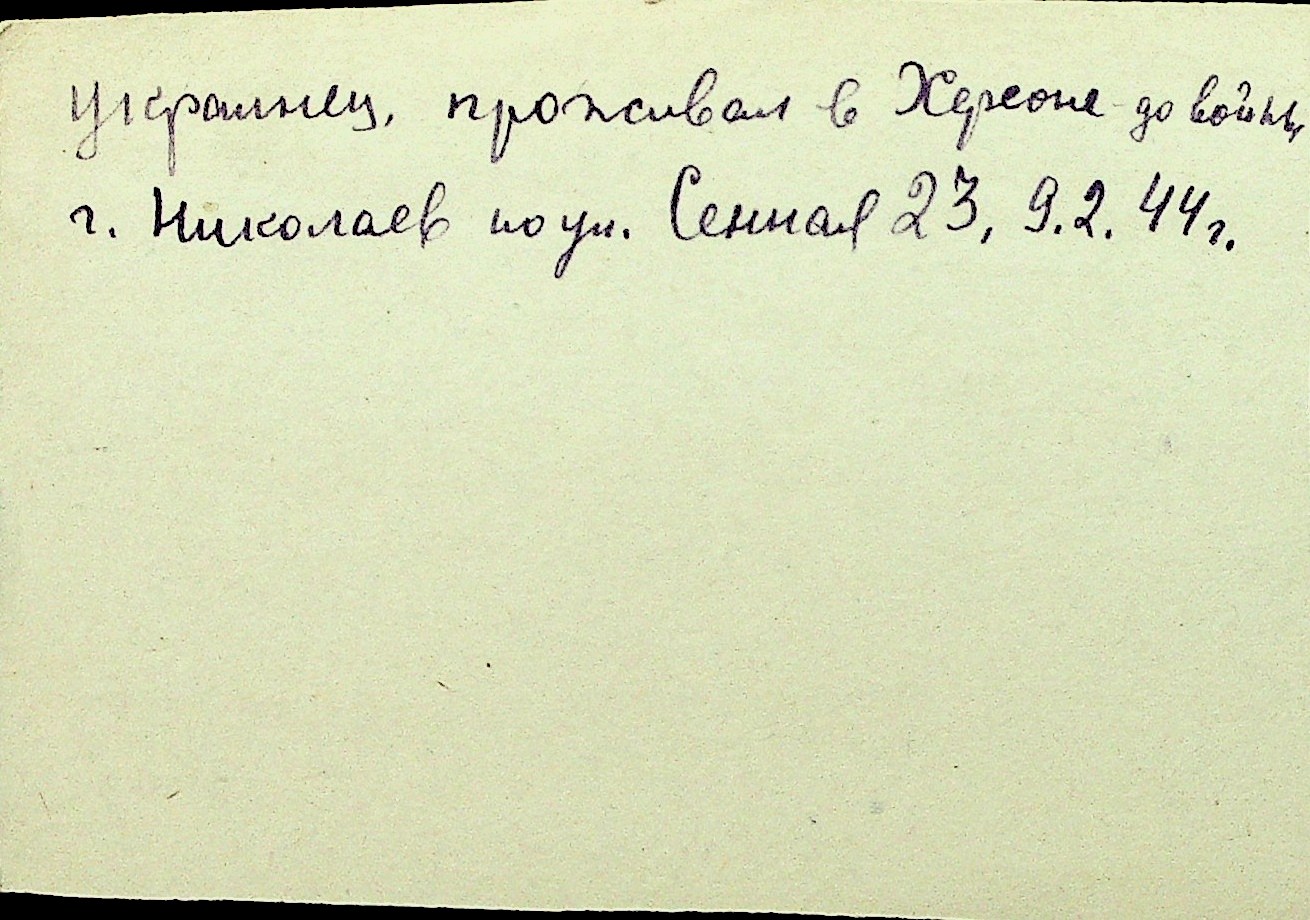 украинец, проживал в Херсоне до войны
г. Николаев по ул. Сенная 23, 9.2.44г.